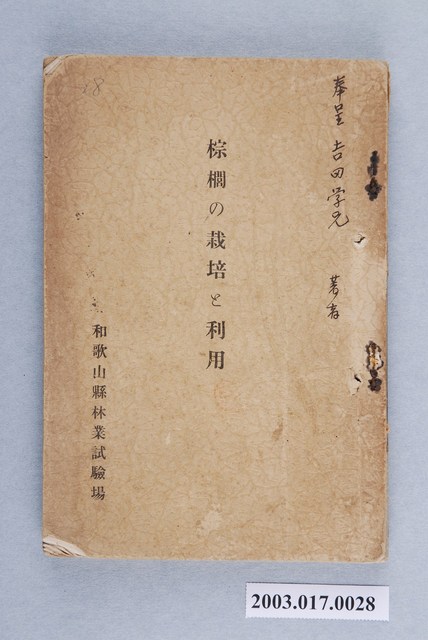 奉呈 吉田学兄 著者
棕櫚の栽培と利用
和歌山縣林業試驗場
18
2003.017.0028